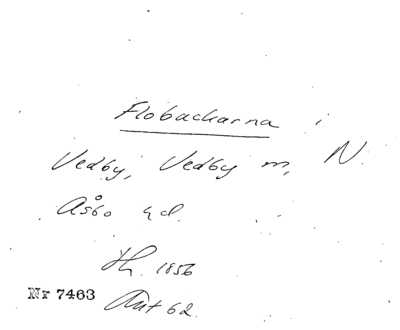 Flobackarna i
Vedby, Vedby m, N.
Åsbo hd.
Th. 1856
Nr 7463
Ant 62.